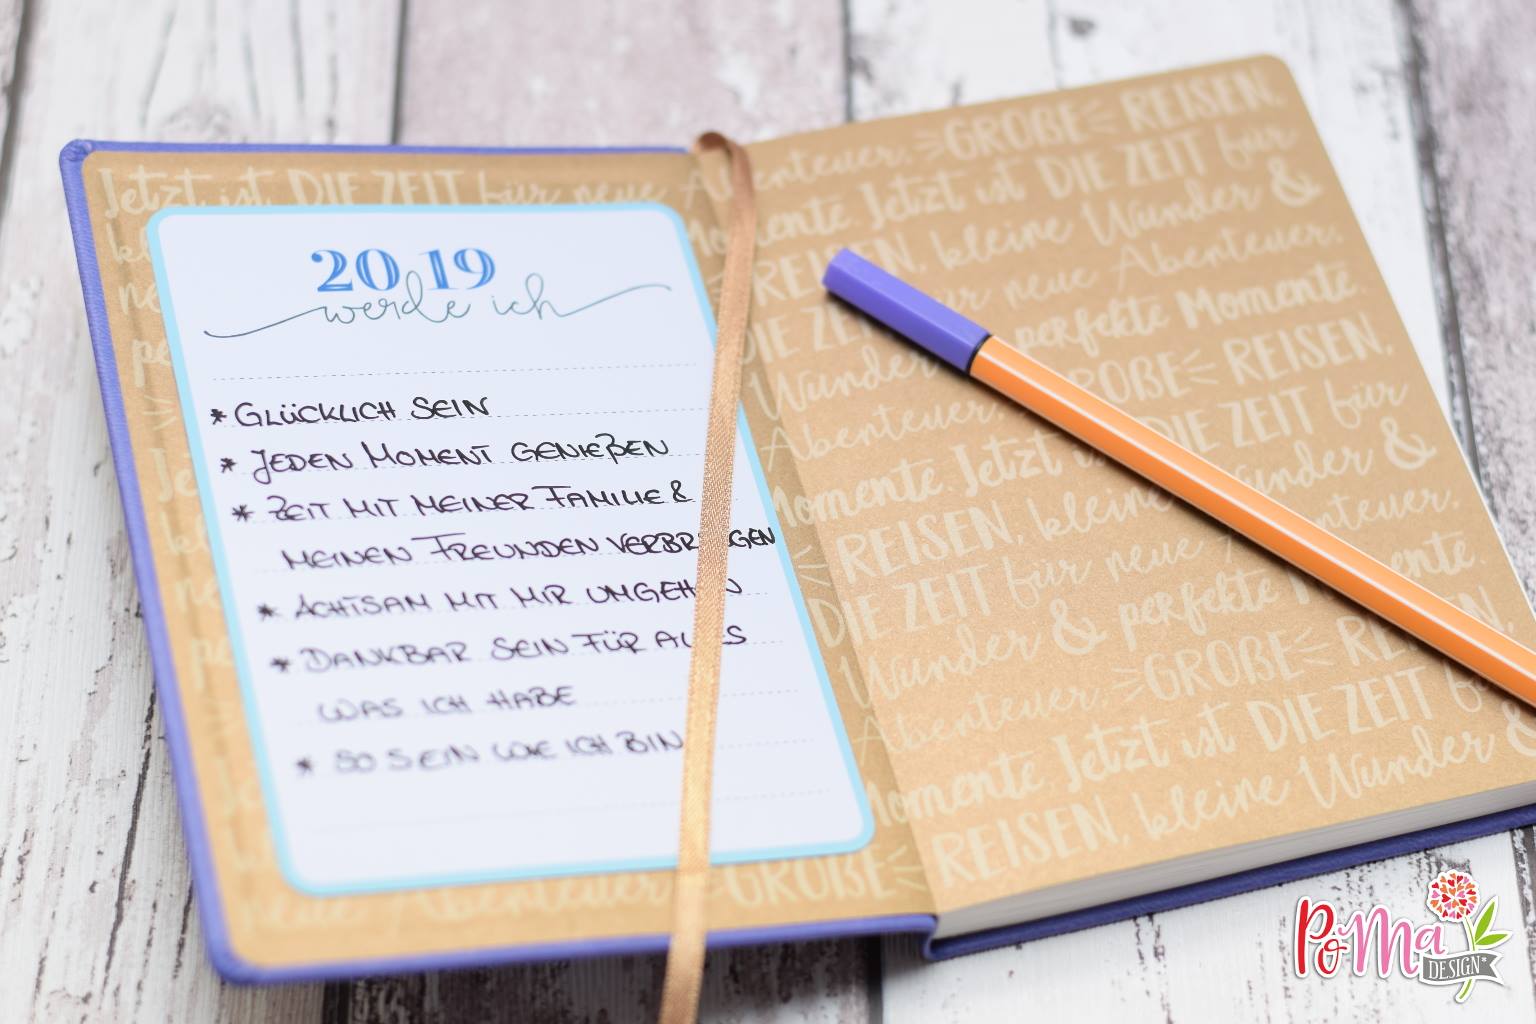 Jetzt ist DIE ZEIT für neue Abenteuer,
2019
werde ich
* GLÜCKLICH SEIN
* JEDEN MOMENT GENIEßEN
* ZEIT MIT MEINER FAMILIE &
MEINEN FREUNDEN VERBRINGEN
* ACHTSAM MIT MIR UMGEHEN
* DANKBAR SEIN FÜR ALLES
WAS ICH HABE
* SO SEIN WIE ICH BIN
GROßE REISEN,
Momente. Jetzt ist DIE ZEIT für
REISEN, kleine Wunder &
DIE ZEIT für neue Abenteuer,
Wunder & perfekte Momente.
Abenteuer, GROßE REISEN,
Momente. Jetzt ist DIE ZEIT für
REISEN, kleine Wunder &
DIE ZEIT für neue Abenteuer,
Wunder & perfekte Momente.
Abenteuer, GROßE REISEN,
Momente. Jetzt ist DIE ZEIT für
REISEN, kleine Wunder &
neue Abenteuer, GROßE
PoMa
DESIGN*